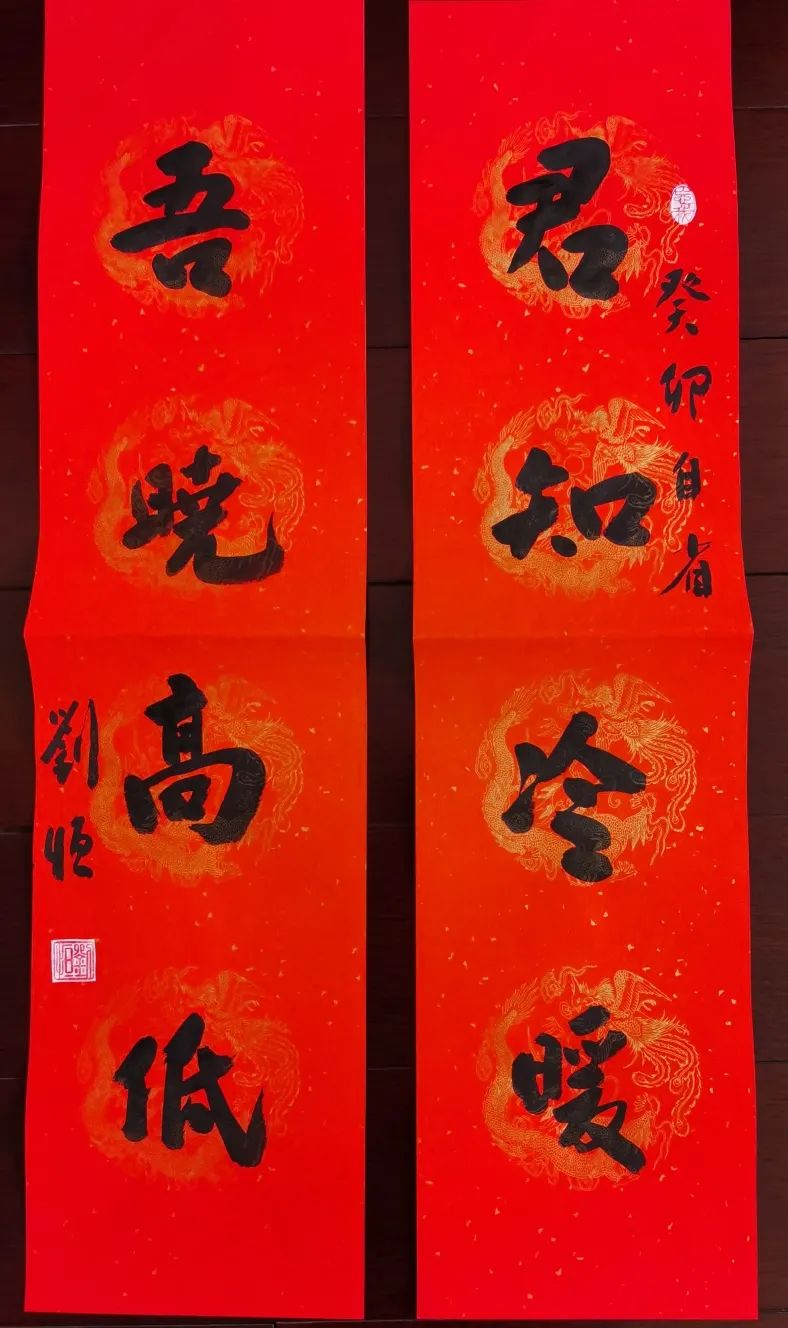 君知冷暖
癸卯自省
吾曉高低
劉恒